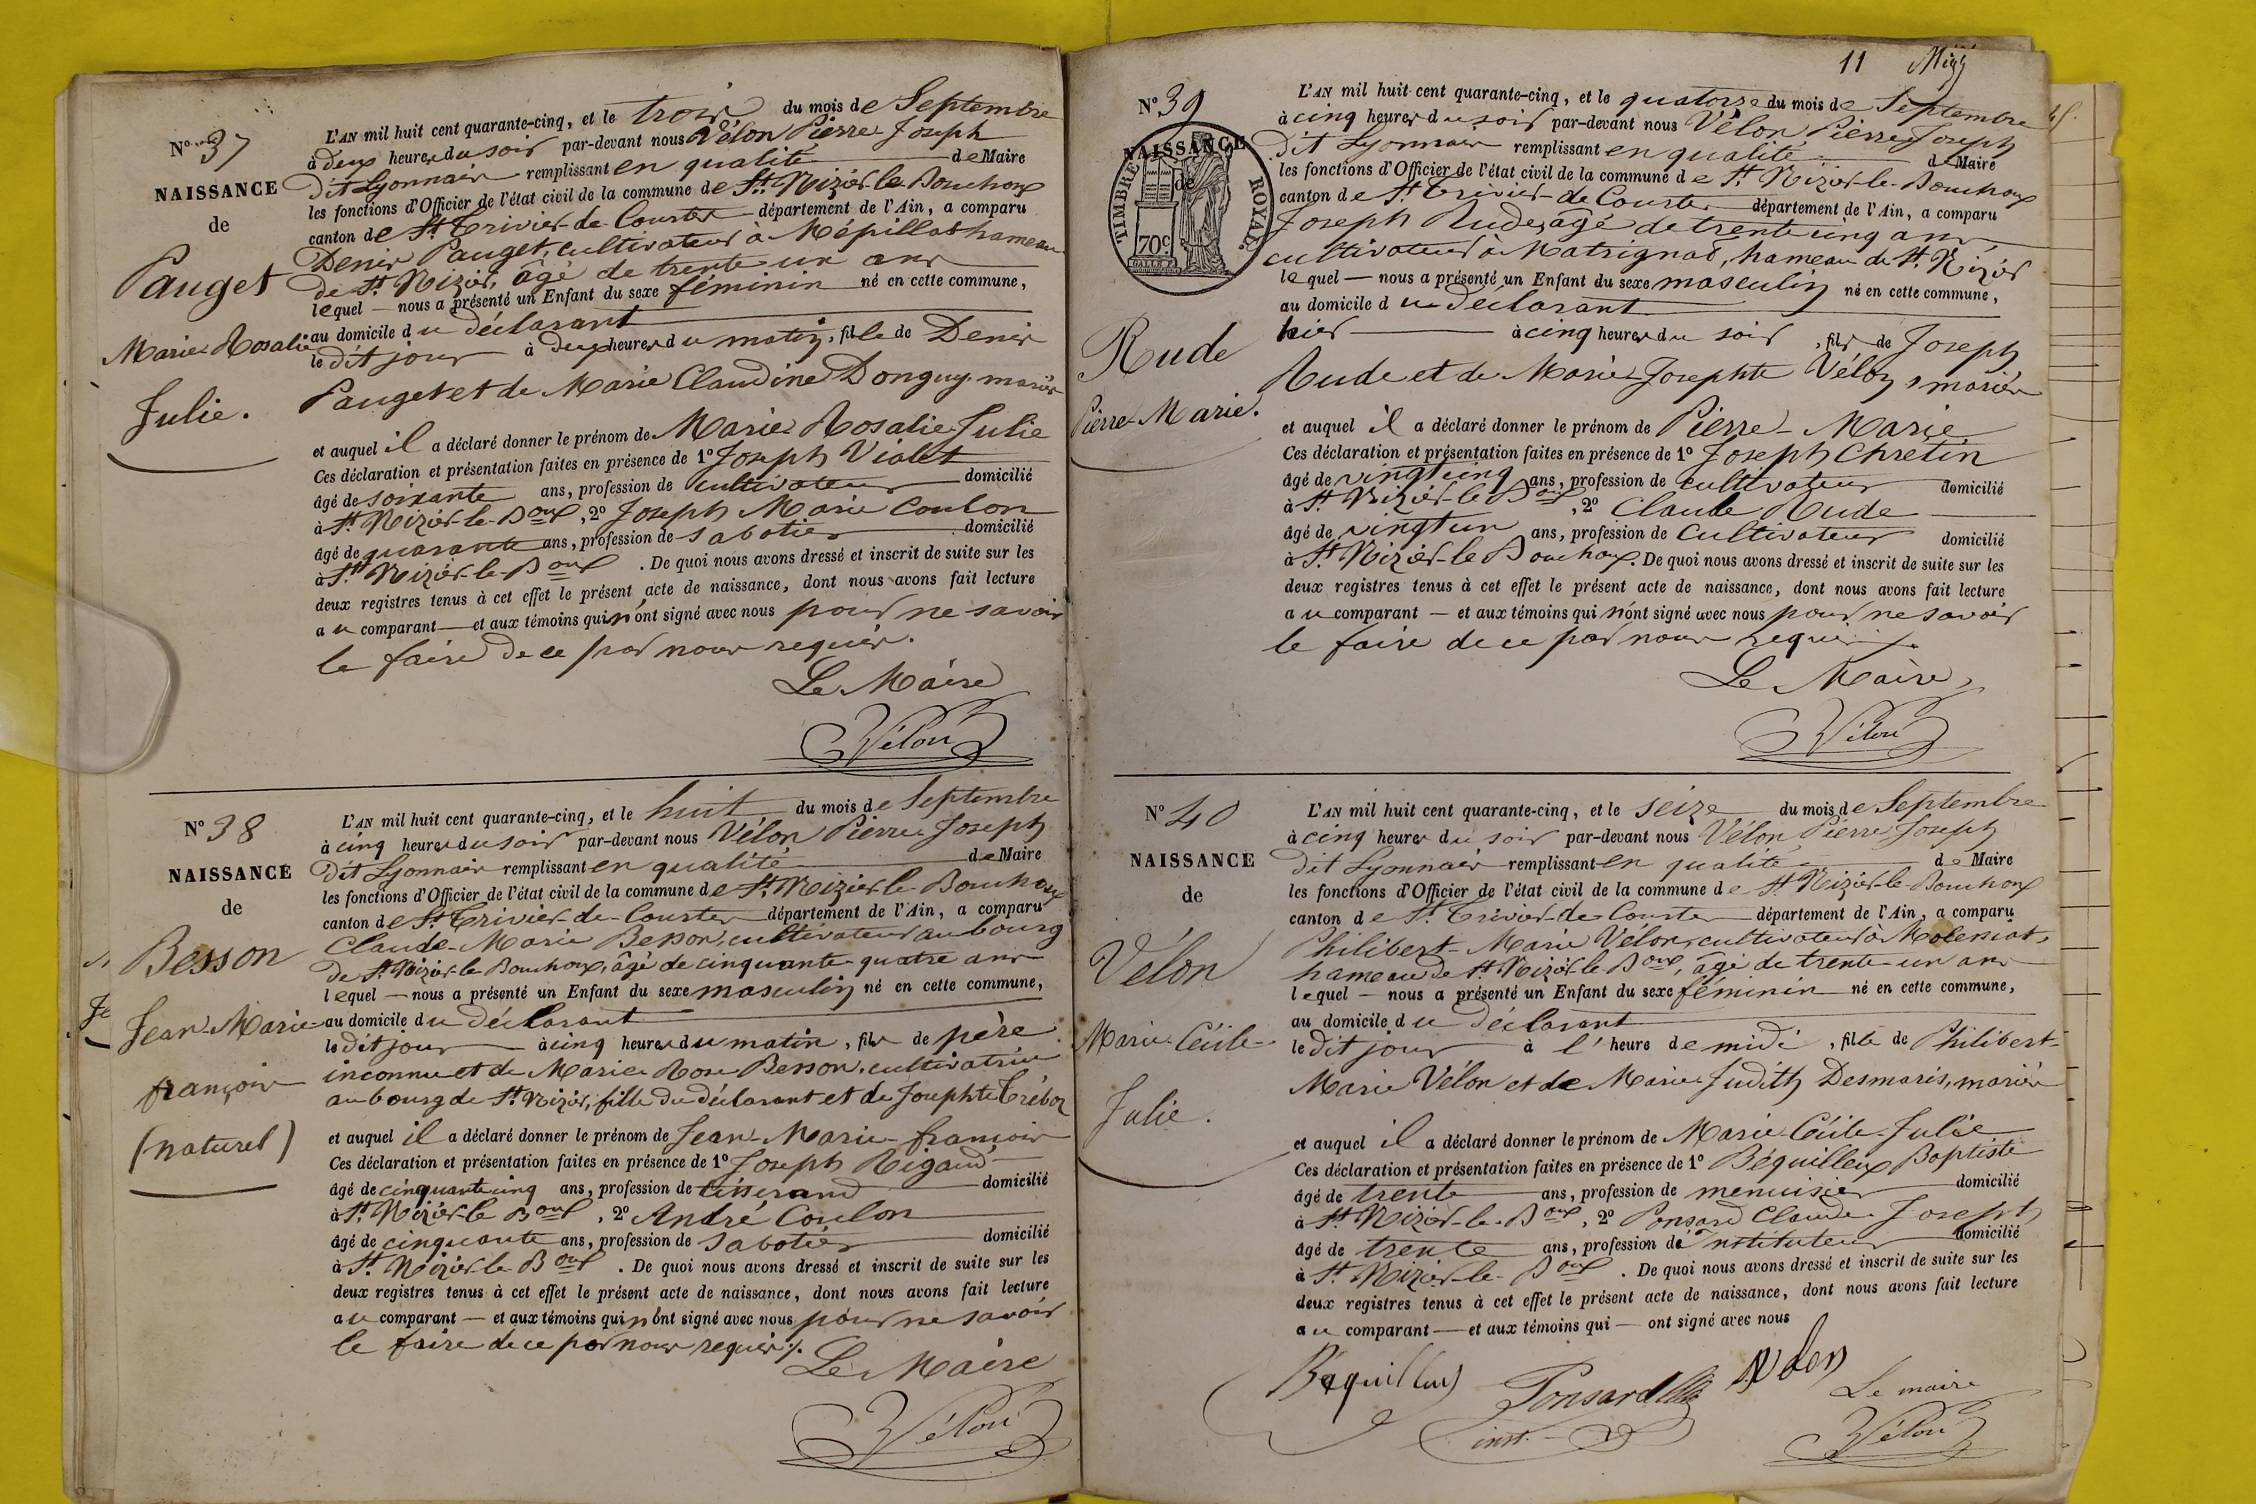 N° 37
NAISSANCE
de
Pauget
Marie Rosalie
Julie.
L'AN mil huit cent quarante-cinq, et le trois du mois de Septembre
à deux heures du soir par-devant nous Vélon Pierre Joseph
dit Lyonnais remplissant en qualité de Maire
les fonctions d'Officier de l'état civil de la commune de St. Nizier-le-Bouchoux
canton de St. Trivier-de-Courtes département de l'Ain, a comparu
Denis Pauget, cultivateur à Mépillat hameau
de St. Nizier, âgé de trente un ans
lequel — nous a présenté un Enfant du sexe féminin né en cette commune,
au domicile du déclarant
le dit jour à deux heures du matin, fille de Denis
Pauget et de Marie Claudine Donguy mariés
et auquel il a déclaré donner le prénom de Marie Rosalie Julie
Ces déclaration et présentation faites en présence de 1° Joseph Violet
âgé de soixante ans, profession de cultivateur domicilié
à St. Nizier-le-Boux, 2° Joseph Marie Coulon
âgé de quarante ans, profession de sabotier domicilié
à St. Nizier-le-Boux. De quoi nous avons dressé et inscrit de suite sur les
deux registres tenus à cet effet le présent acte de naissance, dont nous avons fait lecture
au comparant — et aux témoins qui n'ont signé avec nous pour ne savoir
le faire de ce par nous requis.
Le Maire
Vélon
N° 38
NAISSANCE
de
Besson
Jean Marie
françois
(naturel)
L'AN mil huit cent quarante-cinq, et le huit du mois de Septembre
à cinq heures du soir par-devant nous Vélon Pierre Joseph
dit Lyonnais remplissant en qualité de Maire
les fonctions d'Officier de l'état civil de la commune de St. Nizier-le-Bouchoux
canton de St. Trivier-de-Courtes département de l'Ain, a comparu
Claude-Marie Besson, cultivateur au bourg
de St. Nizier-le-Bouchoux, âgé de cinquante-quatre ans
lequel — nous a présenté un Enfant du sexe masculin né en cette commune,
au domicile du déclarant
le dit jour à cinq heures du matin, fils de père
inconnu et de Marie Rose Besson, cultivatrice
au bourg de St. Nizier, fille du déclarant et de Josephte Tréboz
et auquel il a déclaré donner le prénom de Jean-Marie-françois
Ces déclaration et présentation faites en présence de 1° Joseph Rigaud
âgé de cinquante cinq ans, profession de tisserand domicilié
à St. Nizier-le-Boux, 2° André Coulon
âgé de cinquante ans, profession de sabotier domicilié
à St. Nizier-le-Boux. De quoi nous avons dressé et inscrit de suite sur les
deux registres tenus à cet effet le présent acte de naissance, dont nous avons fait lecture
au comparant — et aux témoins qui n'ont signé avec nous pour ne savoir
le faire de ce par nous requis.
Le Maire
Vélon
11
N° 39
NAISSANCE
de
TIMBRE ROYAL
70c
Rude
Pierre-Marie.
L'AN mil huit cent quarante-cinq, et le quatorze du mois de Septembre
à cinq heures du soir par-devant nous Vélon Pierre Joseph
dit Lyonnais remplissant en qualité de Maire
les fonctions d'Officier de l'état civil de la commune de St. Nizier-le-Bouchoux
canton de St. Trivier-de-Courtes département de l'Ain, a comparu
Joseph Rude, âgé de trente cinq ans,
cultivateur à Matrignat, hameau de St. Nizier
lequel — nous a présenté un Enfant du sexe masculin né en cette commune,
au domicile du déclarant
hier à cinq heures du soir, fils de Joseph
Rude et de Marie Josephte Vélon, mariés
et auquel il a déclaré donner le prénom de Pierre-Marie
Ces déclaration et présentation faites en présence de 1° Joseph Chretin
âgé de vingt cinq ans, profession de cultivateur domicilié
à St. Nizier-le-Boux, 2° Claude Rude
âgé de vingt un ans, profession de cultivateur domicilié
à St. Nizier-le-Bouchoux. De quoi nous avons dressé et inscrit de suite sur les
deux registres tenus à cet effet le présent acte de naissance, dont nous avons fait lecture
au comparant — et aux témoins qui n'ont signé avec nous pour ne savoir
le faire de ce par nous requis.
Le Maire,
Vélon
N° 40
NAISSANCE
de
Vélon
Marie Cécile
Julie.
L'AN mil huit cent quarante-cinq, et le seize du mois de Septembre
à cinq heures du soir par-devant nous Vélon Pierre Joseph
dit Lyonnais remplissant en qualité de Maire
les fonctions d'Officier de l'état civil de la commune de St. Nizier-le-Bouchoux
canton de St. Trivier-de-Courtes département de l'Ain, a comparu
Philibert-Marie Vélon, cultivateur à
hameau de St. Nizier-le-Boux, âgé de trente-un ans
lequel — nous a présenté un Enfant du sexe féminin né en cette commune,
au domicile du déclarant
le dit jour à l'heure de midi, fille de Philibert-
Marie Vélon et de Marie Judith Desmaris, mariés
et auquel il a déclaré donner le prénom de Marie Cécile Julie
Ces déclaration et présentation faites en présence de 1° Béquilleux Baptiste
âgé de trente ans, profession de menuisier domicilié
à St. Nizier-le-Boux, 2° Ponsard Claude Joseph
âgé de trente ans, profession de Instituteur domicilié
à St. Nizier-le-Boux. De quoi nous avons dressé et inscrit de suite sur les
deux registres tenus à cet effet le présent acte de naissance, dont nous avons fait lecture
au comparant — et aux témoins qui — ont signé avec nous
Béquilleux Ponsard Vélon
inst. Le maire
Vélon